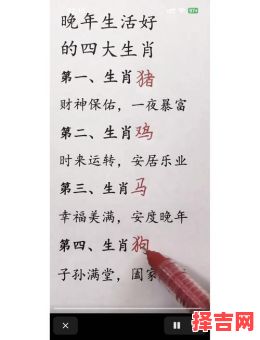 晚年生活好
的四大生肖
第一、生肖猪
财神保佑，一夜暴富
第二、生肖鸡
时来运转，安居乐业
第三、生肖马
幸福美满，安度晚年
第四、生肖狗
子孙满堂，阖家
择吉网